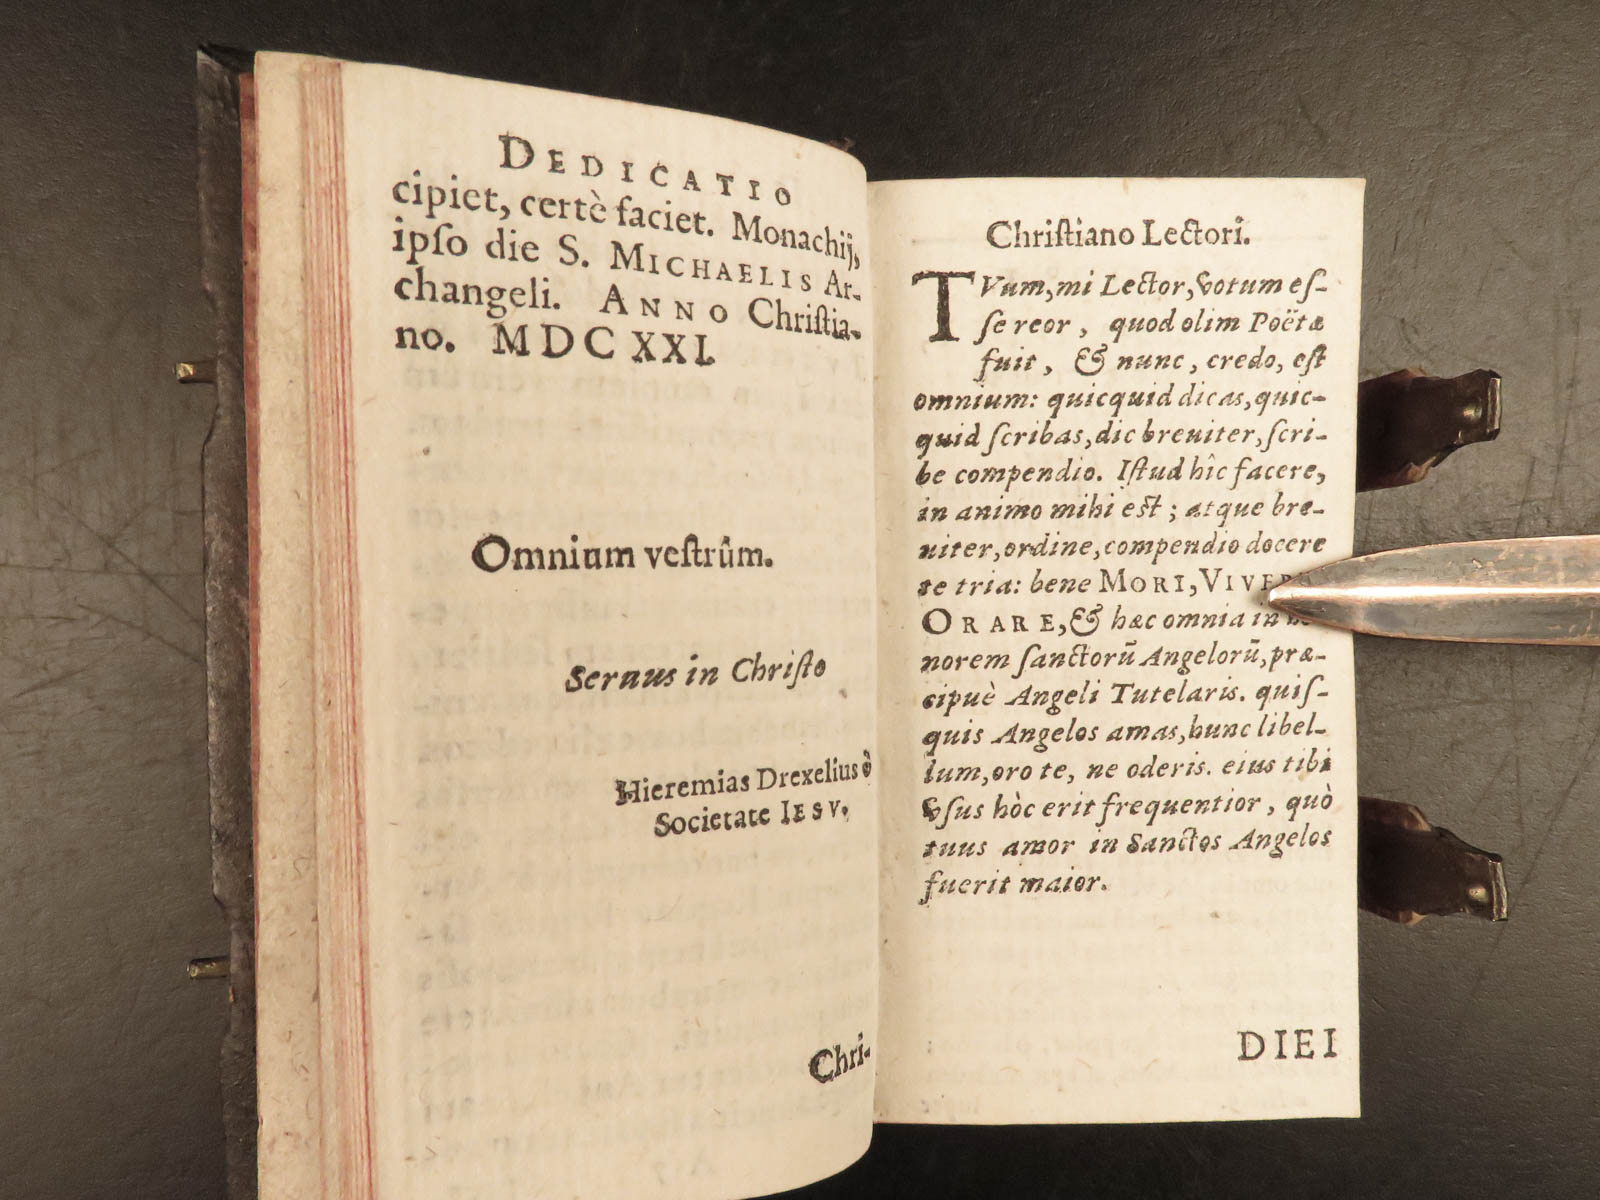 DEDICATIO
cipiet, certè faciet. Monachij,
ipſo die S. MICHAELIS Ar-
changeli. ANNO Chriſtia-
no. MDCXXI.
Omnium veſtrûm.
Seruus in Chriſto
Hieremias Drexelius è
Societate IESV.
Chri-
Chriſtiano Lectori.
TVum, mi Lector, votum eſ-
ſe reor, quod olim Poëtæ
fuit, & nunc, credo, eſt
omnium: quicquid dicas, quic-
quid ſcribas, dic breuiter, ſcri-
be compendio. Iſtud hîc facere,
in animo mihi eſt; atque bre-
uiter, ordine, compendio docere
te tria: bene MORI, VIVERE
ORARE, & hæc omnia in
norem ſanctorũ Angelorũ, præ-
cipuè Angeli Tutelaris. quiſ-
quis Angelos amas, hunc libel-
lum, oro te, ne oderis. eius tibi
vſus hòc erit frequentior, quò
tuus amor in Sanctos Angelos
fuerit maior.
DIEI